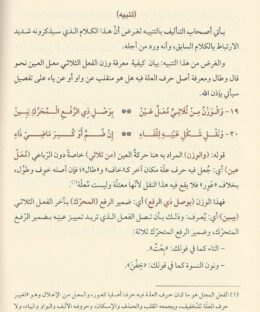 (تنبيه)
يأتي أصحاب التأليف بالتنبيه لغرض أنَّ هذا الكلام الذي سيذكرونه شديد
الارتباط بالكلام السابق، وأنه ورد من أجله.
والغرض من هذا التنبيه: بيان كيفية معرفة وزن الفعل الثلاثي معل العين نحو
قال وطال ومعرفة أصل حرف العلة فيه هل هو منقلب عن واو أو عن ياء على تفصيل
سيأتي بإذن الله.
١٩- وَالْوَزْنُ مِنْ ثُلَاثِيْ مُعَلِّ عَيْنْ ** بِوَصْلِ ذِي الرَّفْعِ الْمُحَرَّكِ يَبِينْ
٢٠- وَنَقْلِ شَكْلِ عَيْنِهِ لِلْفَاءِ ** إِنْ ضُمَّ أَوْ كُسِرَ
قوله: (والوزن) المراد به هنا حركة العين (من ثلاثي) خاصة دون الرباعي (معلّ
عين) أي: جُعل فيه حرف علَّة مكان آخر كـ«خاف» و«طال»؛ فإن أصله خوِف وطوُل،
بخلاف «عَوِر» فلا يقع فيه هذا النقل لأنها معتلة وليست مُعلّة(١).
(بوصل ذي الرفع) أي: ضمير الرفع (المحرك) بآخر الفعل الثلاثي
(يبين) أي: يُعرف: وذلك بأن تصل الفعل الذي تريد تمييز عينه بضمير الرفع
المتحرك، وضمير الرفع المتحرك ثلاثة:
- التاء كما في قولك: «بِعْتُ».
- ونون النسوة كما في قولك: «خِفْنَ».
(١) الفعل المعتل هو ما كان حرف العلة فيه حرفا أصليا كعور، والمعل من الإعلال وهو «تغيير
حرف العلة بالقلب والحذف والإسكان، وحروفه الألف والواو والياء،